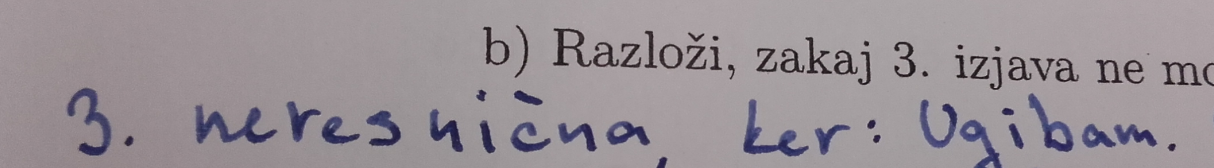 b) Razloži, zakaj 3. izjava ne mo
3. neresnična, ker: Ugibam.